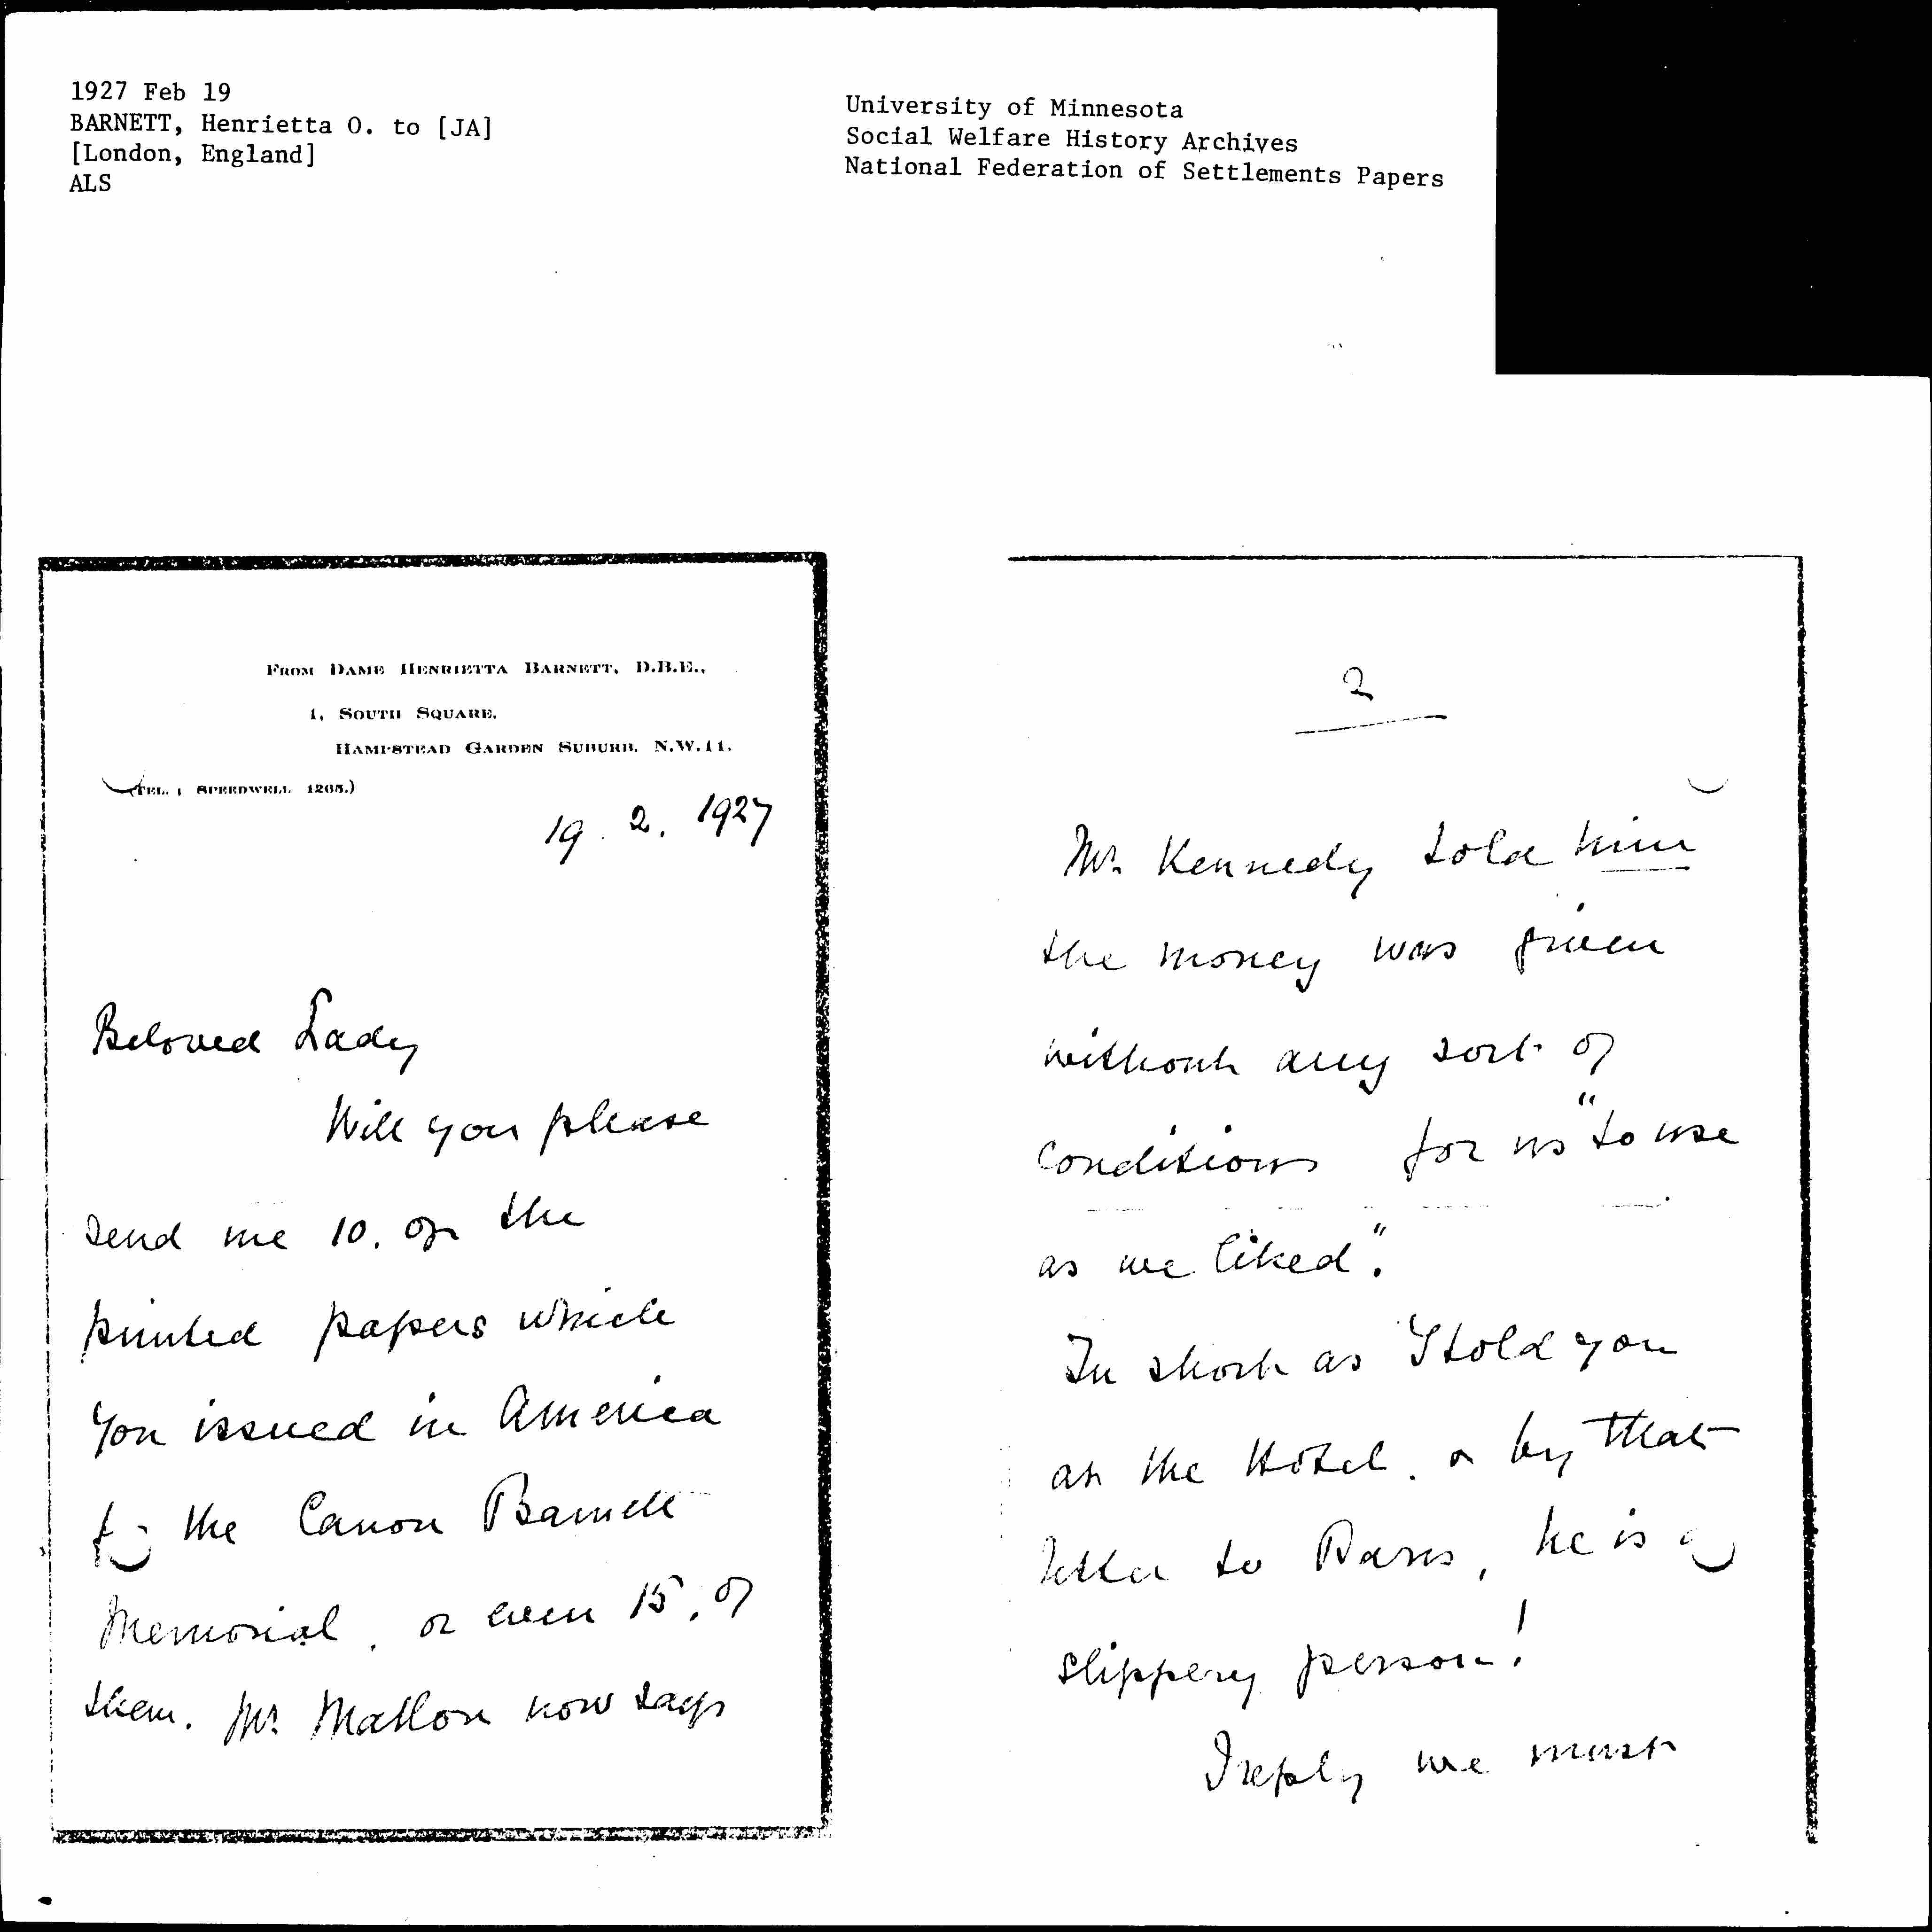 1927 Feb 19
BARNETT, Henrietta O. to [JA]
[London, England]
ALS
University of Minnesota
Social Welfare History Archives
National Federation of Settlements Papers
FROM DAME HENRIETTA BARNETT, D.B.E.,
1, SOUTH SQUARE,
HAMPSTEAD GARDEN SUBURB. N.W.11.
(TEL. : SPEEDWELL 1205.)
19. 2. 1927
Beloved Lady
Will you please
send me 10. of the
printed papers which
you issued in America
for the Canon Barnett
Memorial, or even 15, of
them. Mr Mallon now says
2
Mr Kennedy told him
the money was given
without any sort of
conditions for us "to use
as we liked".
In short as I told you
at the Hotel. or by that
letter to Paris, he is a
slippery person!
I reply we must